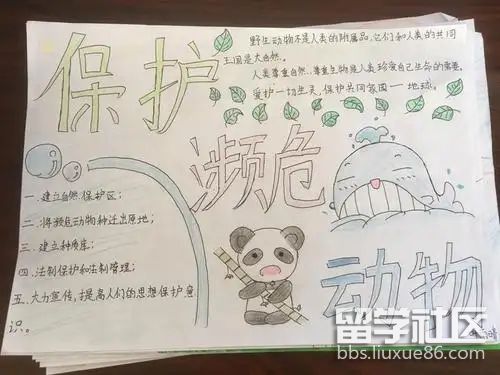 保护
野生动物不是人类的附属品,它们和人类的共同
王国是大自然。
人类尊重自然、尊重生物是人类珍爱自己生命的需要,
爱护一切生灵,保护共同家园——地球。
濒危
一、建立自然保护区;
二、将濒危动物种迁出原地;
三、建立种质库;
四、法制保护和法制管理;
五、大力宣传,提高人们的思想保护意
识。
动物
留学社区
bbs.liuxue86.com